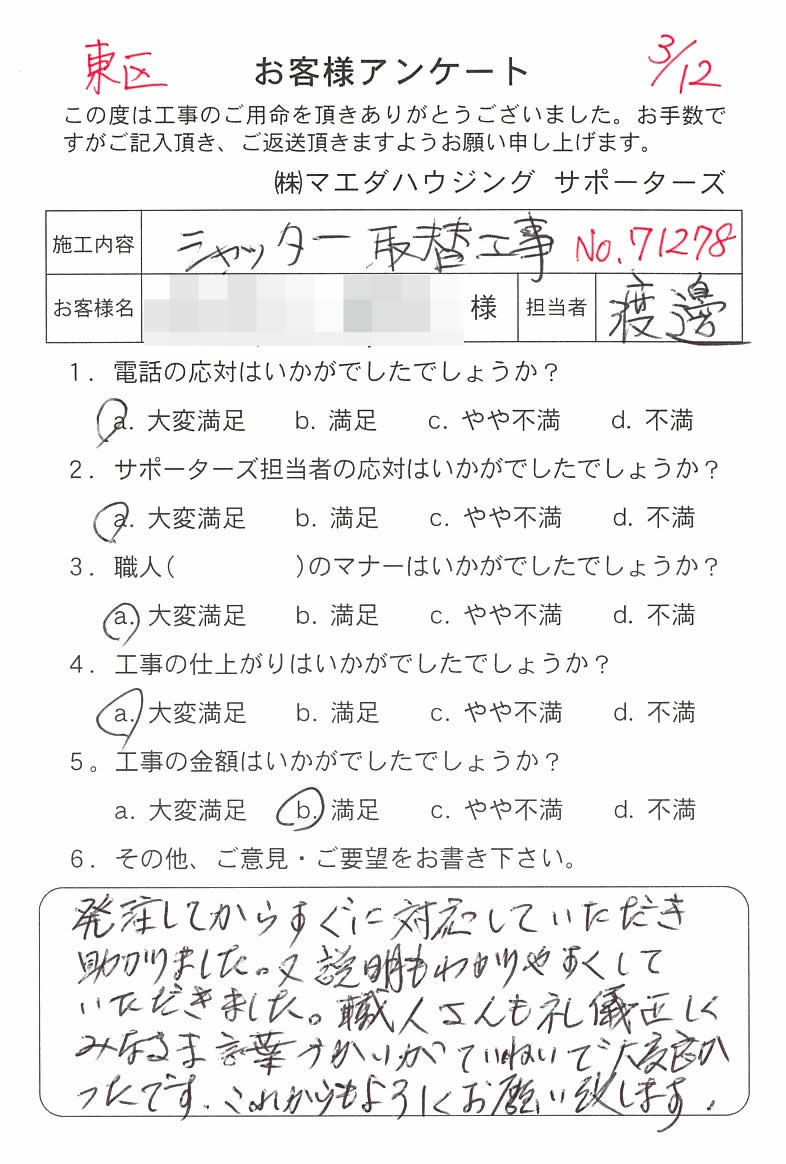 東区 お客様アンケート 3/12
この度は工事のご用命を頂きありがとうございました。お手数で
すがご記入頂き、ご返送頂きますようお願い申し上げます。
㈱マエダハウジング サポーターズ
施工内容 シャッター取替工事 No.71278
お客様名 様 担当者 渡邊
1. 電話の応対はいかがでしたでしょうか？
a. 大変満足 b. 満足 c. やや不満 d. 不満
2. サポーターズ担当者の応対はいかがでしたでしょうか？
a. 大変満足 b. 満足 c. やや不満 d. 不満
3. 職人( )のマナーはいかがでしたでしょうか？
a. 大変満足 b. 満足 c. やや不満 d. 不満
4. 工事の仕上がりはいかがでしたでしょうか？
a. 大変満足 b. 満足 c. やや不満 d. 不満
5。工事の金額はいかがでしたでしょうか？
a. 大変満足 b. 満足 c. やや不満 d. 不満
6. その他、ご意見・ご要望をお書き下さい。
発注してからすぐに対応していただき
助かりました。又説明もわかりやすくして
いただきました。職人さんも礼儀正しく
みなさま言葉づかいがていねいで大変良か
ったです。これからもよろしくお願い致します。